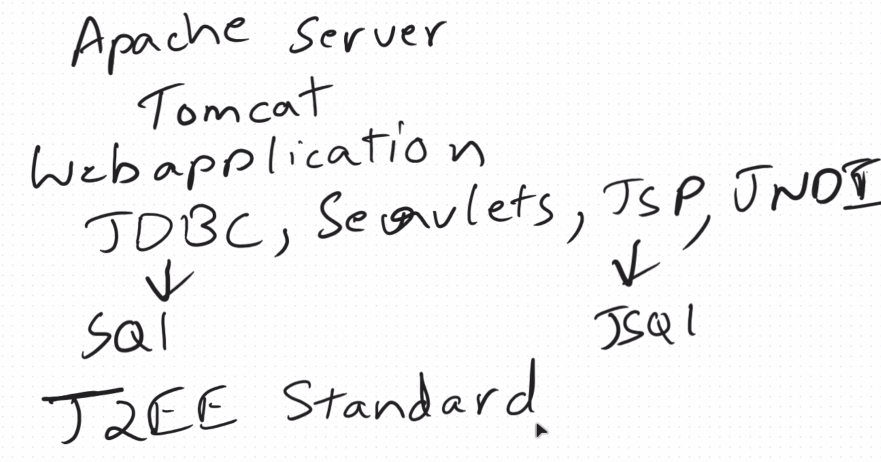 Apache Server
Tomcat
Webapplication
JDBC, Servlets, JSP, JNDI
SQl JSQl
J2EE Standard